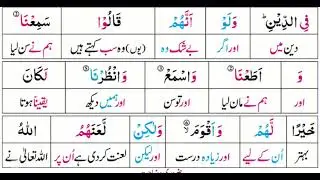 فِي الدِّيْنِ ؕ وَلَوْ اَنَّهُمْ قَالُوْا سَمِعْنَا
دین میں اور اگر بے شک وہ (یوں) وہ سب کہتے ہیں ہم نے سن لیا
وَ اَطَعْنَا وَ اسْمَعْ وَ انْظُرْنَا لَكَانَ
اور ہم نے مان لیا اور تو سن اور ہمیں دیکھ یقیناً ہوتا
خَيْرًا لَّهُمْ وَ اَقْوَمَ ۙ وَلٰكِنْ لَّعَنَهُمُ اللّٰهُ
بہتر ان کے لیے اور زیادہ درست اور لیکن لعنت کر دی ہے ان پر اللہ تعالیٰ نے